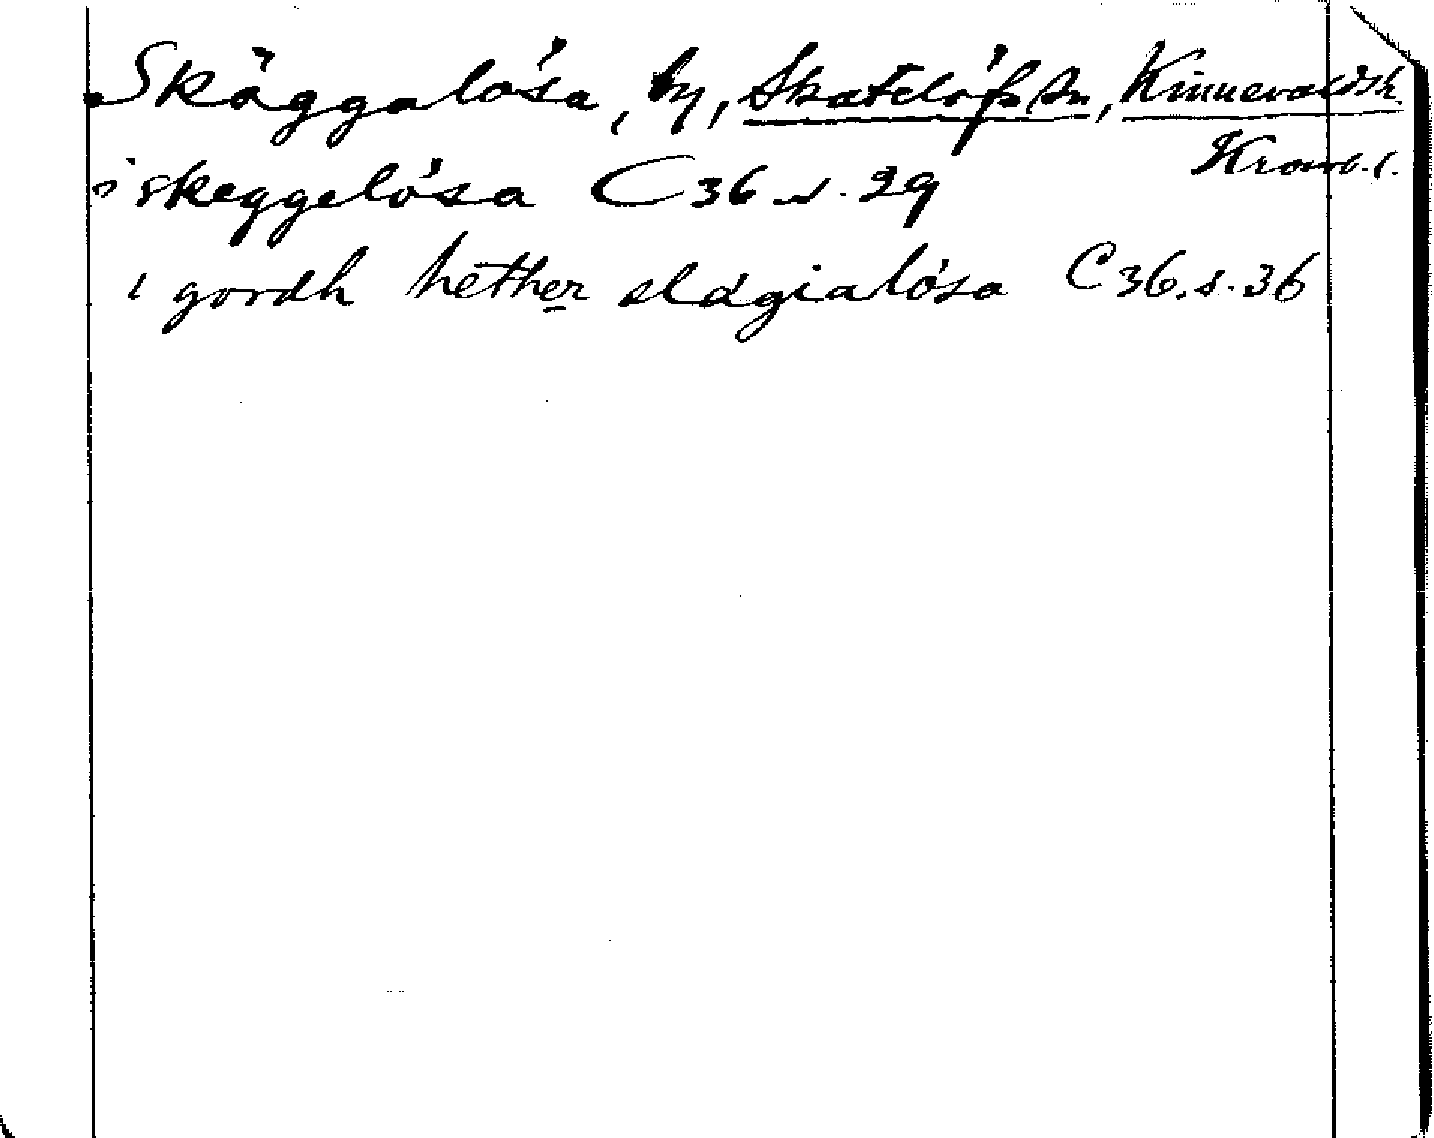 Skäggalösa, by, Skatelöfs sn, Kinnevalds h
Kronob. l.
i skeggelósa C 36 s. 29
i gordh hether slàgialósa C 36. s. 36